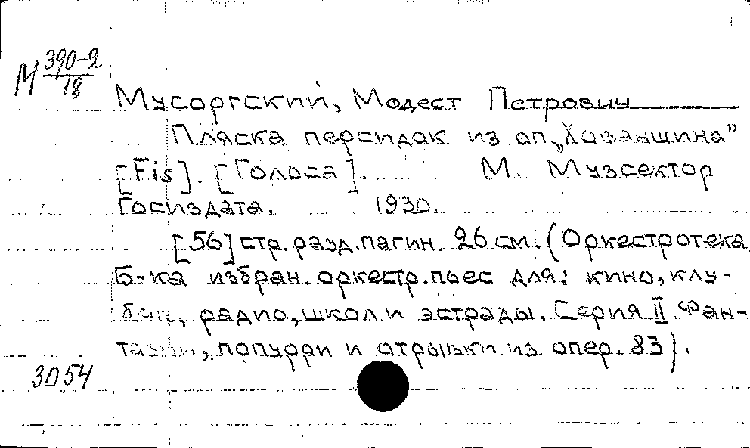 М 390-2
18
Мусоргский, Модест Петрович
Пляска персидок из оп. „Хованщина"
[Fis]. [Голоса]. М. Музсектор
Госиздата. 1930.
[56] стр. разд. пагин. 26 см. (Оркестротека
Б-ка избран. оркестр. пьес для: кино, клу-
бов, радио, школ и эстрады. Серия II. Фан-
тазии, попурри и отрывки из опер. 83).
3054